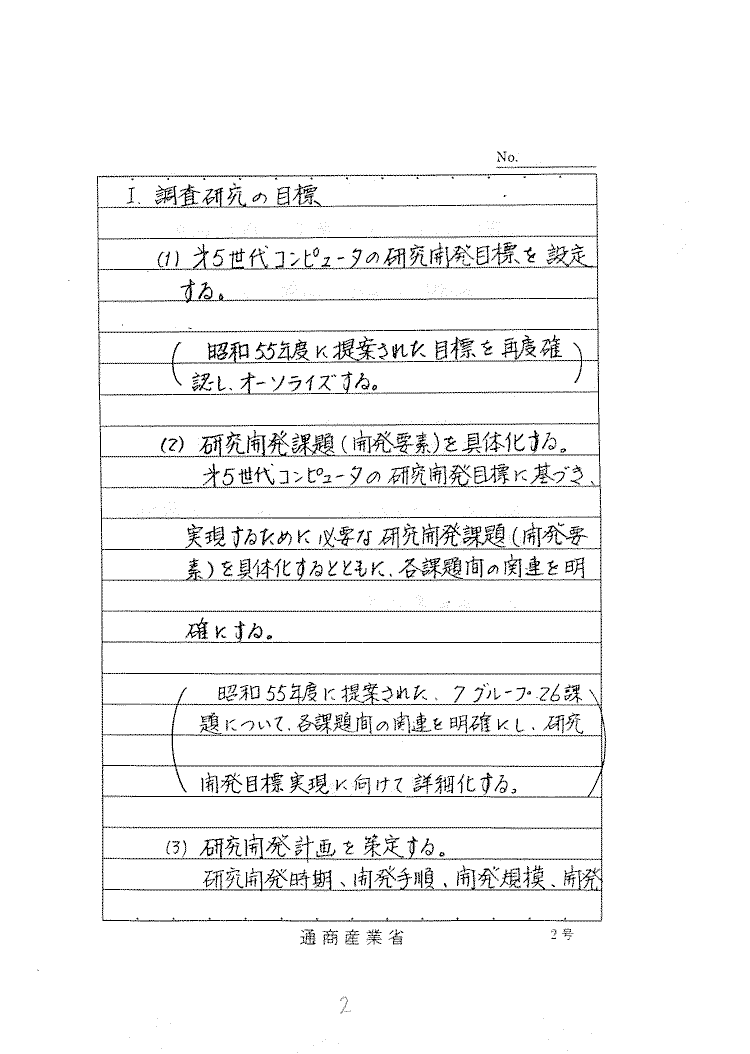 No.
I. 調査研究の目標
(1) 才5世代コンピュータの研究開発目標を設定
する。
(昭和55年度に提案された目標を再度確
認し、オーソライズする。)
(2) 研究開発課題(開発要素)を具体化する。
才5世代コンピュータの研究開発目標に基づき、
実現するために必要な研究開発課題(開発要
素)を具体化するとともに、各課題間の関連を明
確にする。
(昭和55年度に提案された、7グループ・26課
題について、各課題間の関連を明確にし、研究
開発目標実現に向けて詳細化する。)
(3) 研究開発計画を策定する。
研究開発時期、開発手順、開発規模、開発
通商産業省 2号
2